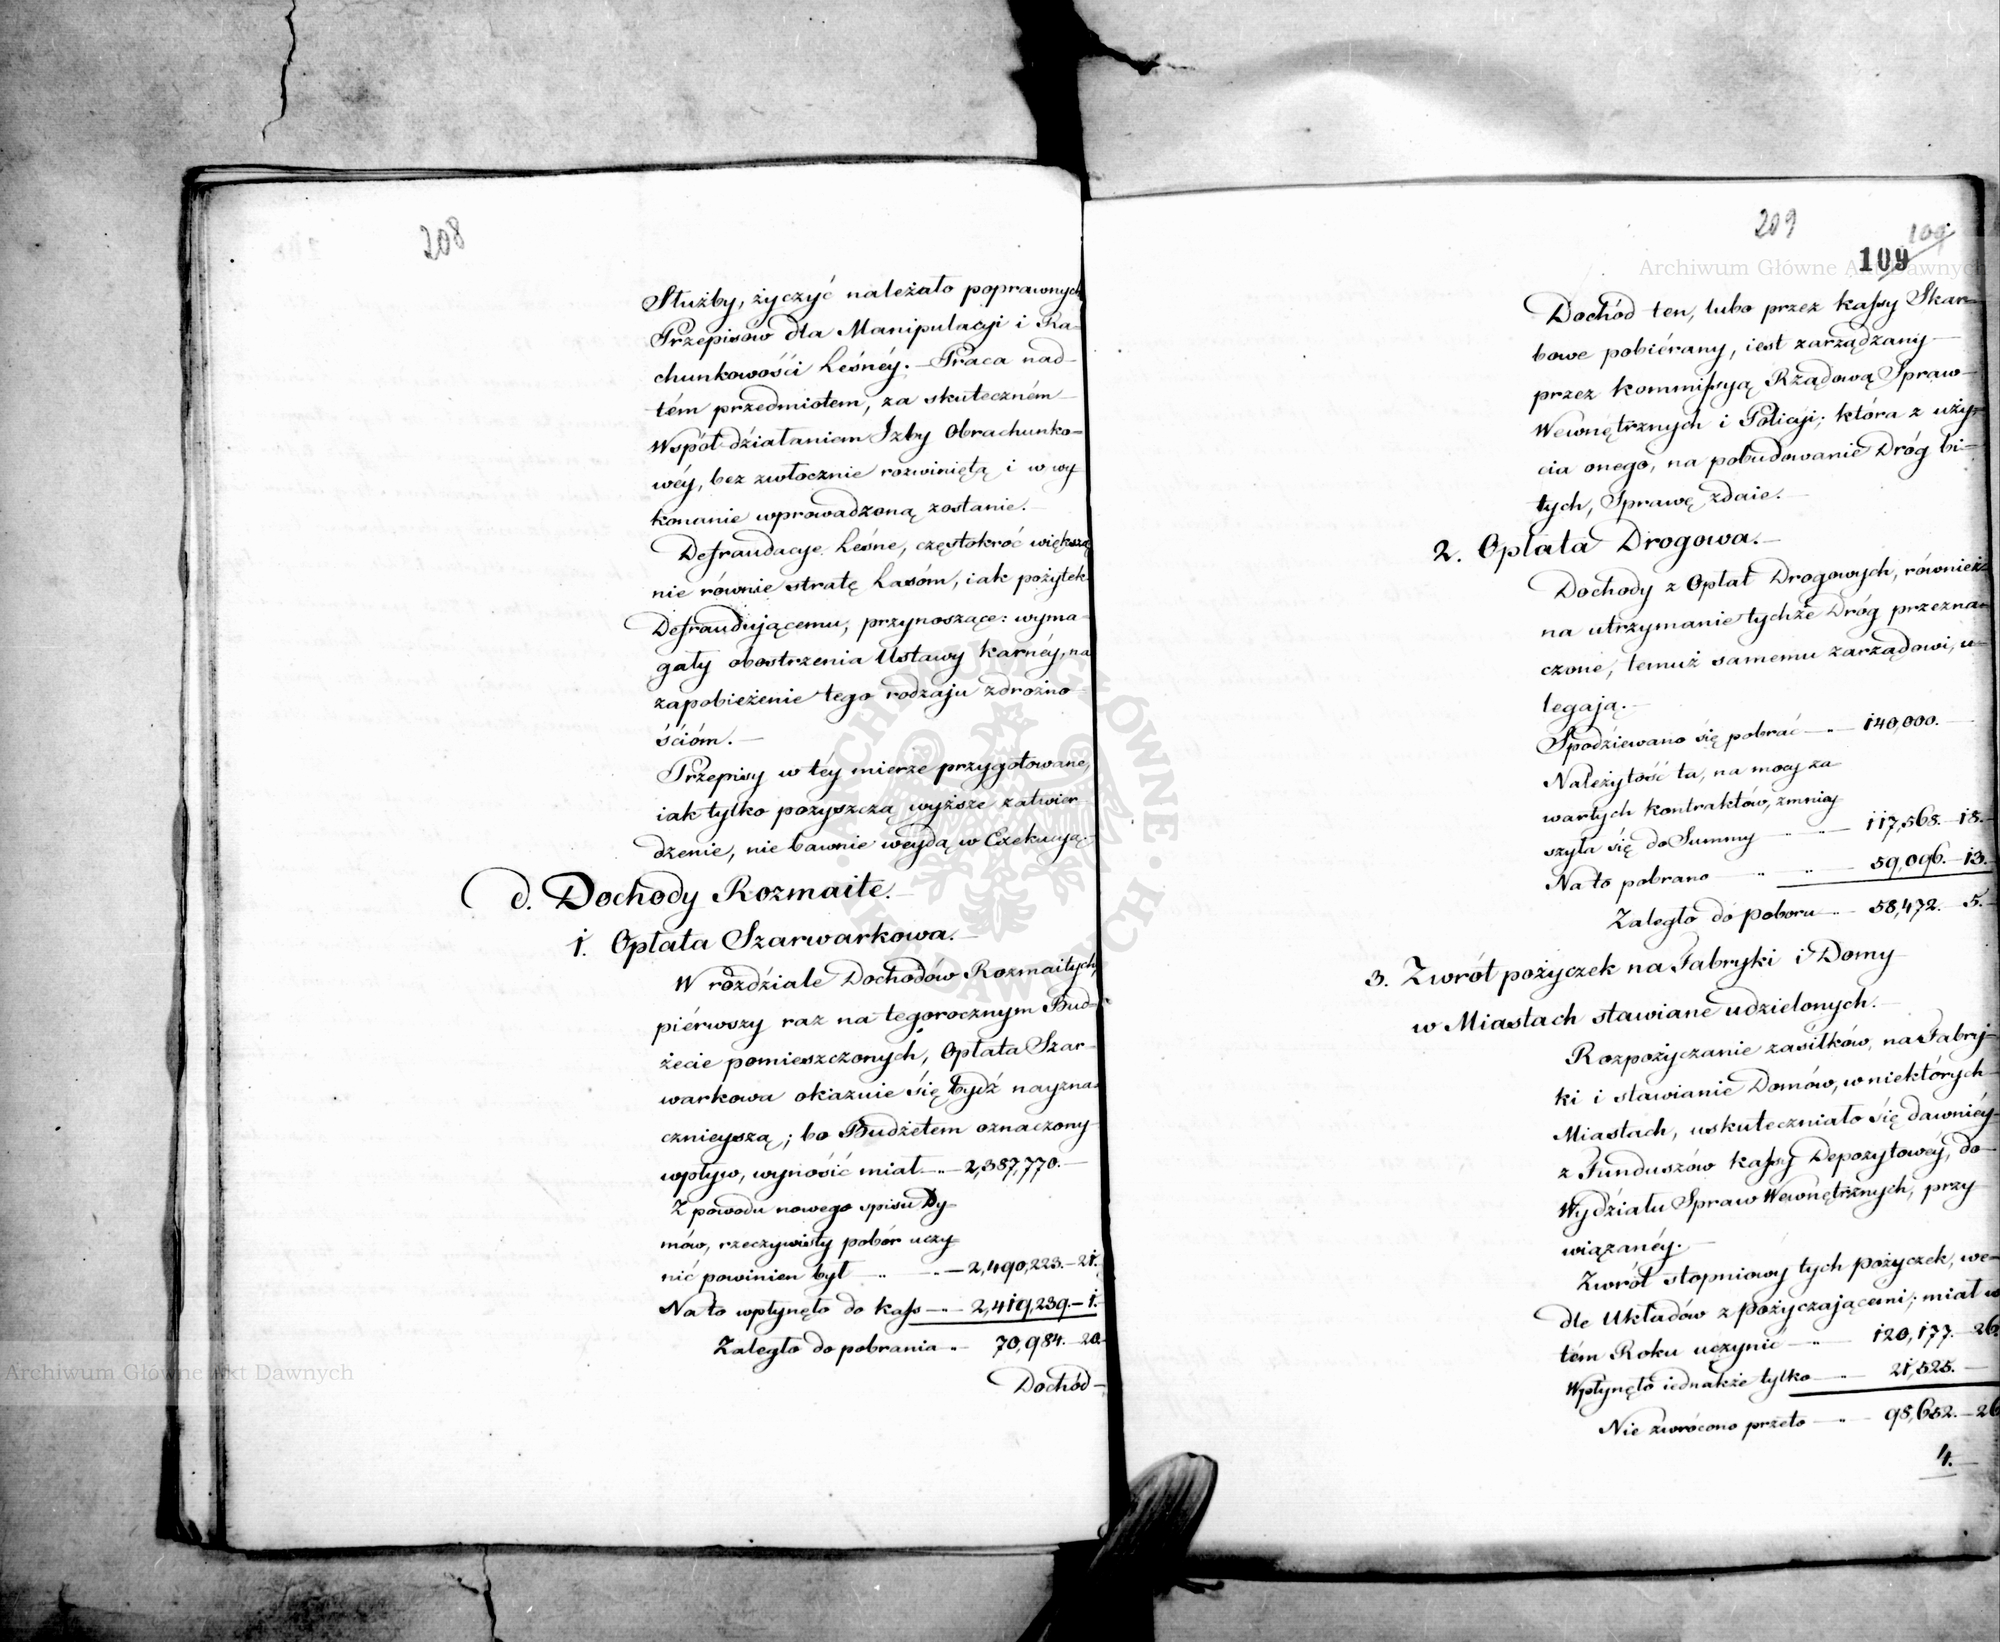 208
Służby, życzyć należało poprawnych
Przepisów dla Manipulacyi i Ra-
chunkowości Leśnéy. — Praca nad
tém przedmiotem, za skuteczném
Współ-działaniem Izby Obrachunko-
wéy, bez zwłocznie rozwiniętą i w wy
konanie wprowadzoną zostanie. —
Defraudacye Leśne, częstokroć większą
nie równie stratę Lasóm, iak pożytek
Defraudującemu, przynoszące: wyma-
gały obostrzenia Ustawy karnéy, na
zapobieżenie tego rodzaju zdrożno
ścióm. —
Przepisy w téy mierze przygotowane,
iak tylko pozyszczą wyższe zatwier-
dzenie, nie bawnie weydą w Exekucyą. —
d. Dochody Rozmaite. —
1. Opłata Szarwarkowa. —
W rozdziale Dochodów Rozmaitych,
piérwszy raz na tegorocznym Bud-
żecie pomieszczonych, Opłata Szar-
warkowa okazuie się bydź nayzna-
cznieyszą; bo Budżetem oznaczony
wpływ, wynosić miał — „ — 2,387,770. —
Z powodu nowego spisu Dy
mów, rzeczywisty pobór uczy
nić powinien był — „ — „ — 2,490,223. — 21.
Na to wpłynęło do kass — „ — 2,419,239. — 1.
Zaległo do pobrania — „ — 70,984. — 20.
Dochód —
209
109
109
Dochód ten, lubo przez kassy Skar-
bowe pobiérany, iest zarządzany —
przez Kommissyą Rządową Spraw-
Wewnętrznych i Policyi; która z uży-
cia onego, na pobudowanie Dróg bi-
tych, Sprawę zdaie. —
2. Opłata Drogowa. —
Dochody z Opłat Drogowych, również
na utrzymanie tychże Dróg przezna-
czone, temuż samemu zarządowi, u-
legają. —
Spodziewano się pobrać — „ — 140,000. —
Należytość ta, na mocy za
wartych kontraktów, zmniey
szyła się do Summy — „ — „ — 117,568. — 18. —
Na to pobrano — „ — „ — 59,096. — 13. —
Zaległo do poboru — „ — 58,472. — 5. —
3. Zwrót pożyczek na Fabryki i Domy
w Miastach stawiane udzielonych. —
Rozpożyczanie zasiłków, na Fabry-
ki i stawianie Domów, w niektórych
Miastach, uskuteczniało się dawniéy
z Funduszów kassy Depozytowéy, do
Wydziału Spraw Wewnętrznych, przy
wiązanéy. —
Zwrót stopniowy tych pożyczek, we-
dle Układów z pożyczającemi; miał w
tém Roku uczynić — „ — 120,177. — 26.
Wpłynęło iednakże tylko — „ — 21,525. —
Nie zwrócono przeto — „ — 98,652. — 26
4.
Archiwum Główne Akt Dawnych
Archiwum Główne Akt Dawnych
ARCHIWUM GŁÓWNE AKT DAWNYCH